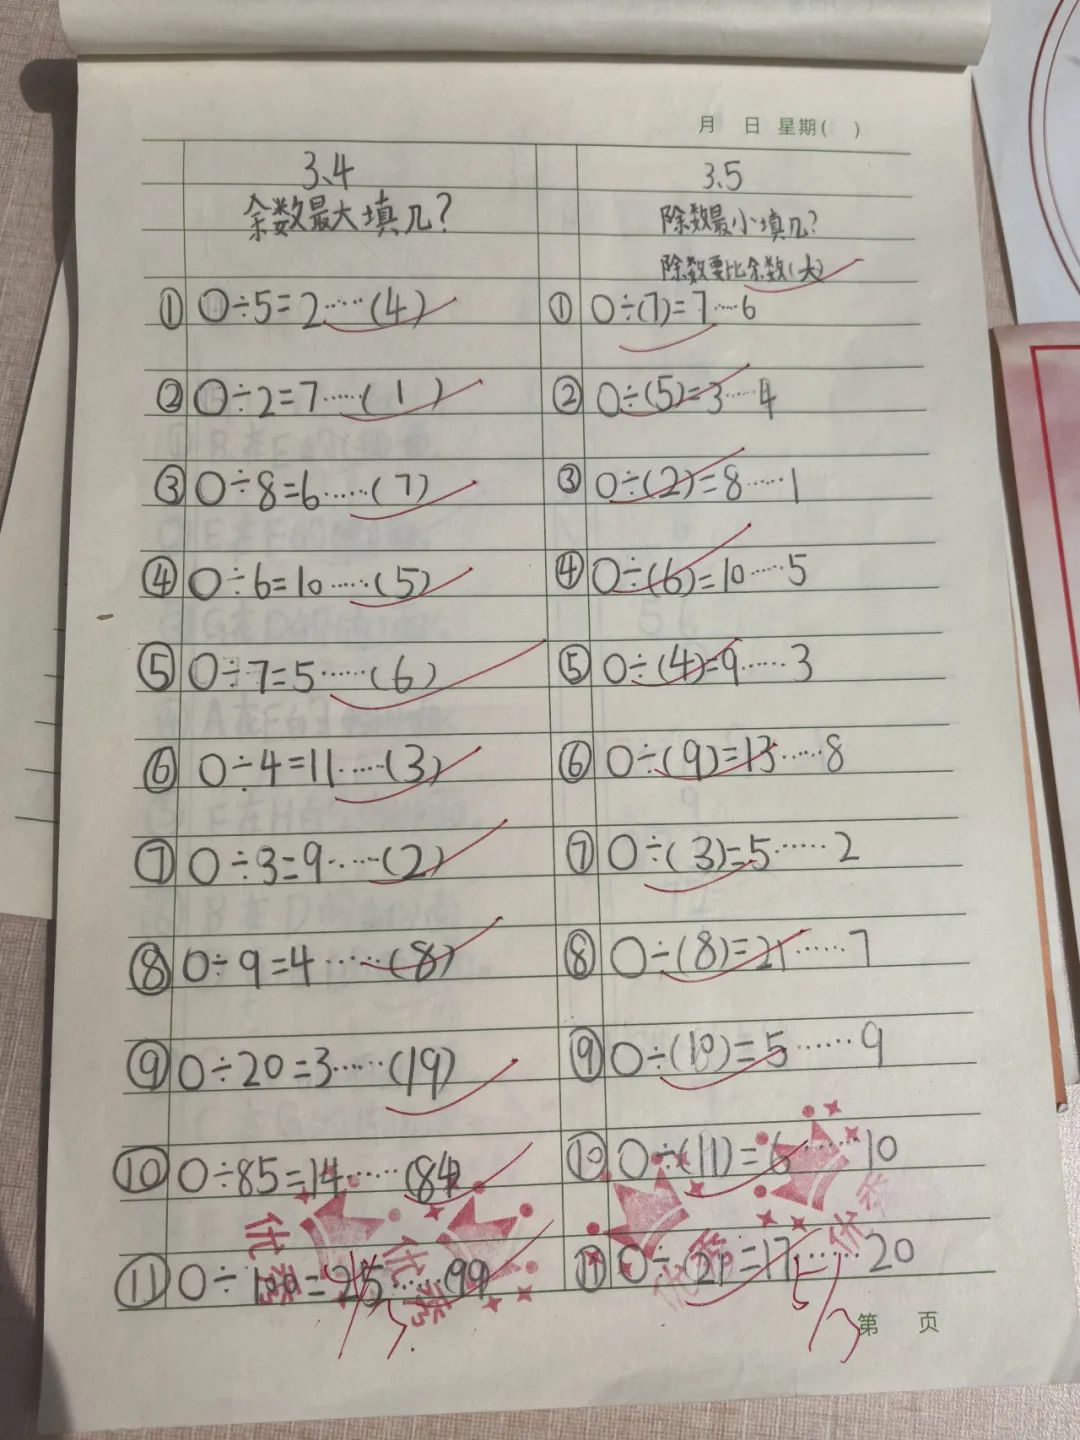 月 日 星期( )
3.4
余数最大填几?
① ○÷5=2……(4)
② ○÷2=7……(1)
③ ○÷8=6……(7)
④ ○÷6=10……(5)
⑤ ○÷7=5……(6)
⑥ ○÷4=11……(3)
⑦ ○÷3=9……(2)
⑧ ○÷9=4……(8)
⑨ ○÷20=3……(19)
⑩ ○÷85=14……(84)
⑪ ○÷100=25……99
优秀
优秀
5/3.
3.5
除数最小填几?
除数要比余数(大)
① ○÷(7)=7……6
② ○÷(5)=3……4
③ ○÷(2)=8……1
④ ○÷(6)=10……5
⑤ ○÷(4)=9……3
⑥ ○÷(9)=13……8
⑦ ○÷(3)=5……2
⑧ ○÷(8)=21……7
⑨ ○÷(10)=5……9
⑩ ○÷(11)=6……10
⑪ ○÷(21)=17……20
优秀
优秀
5/3
第 页